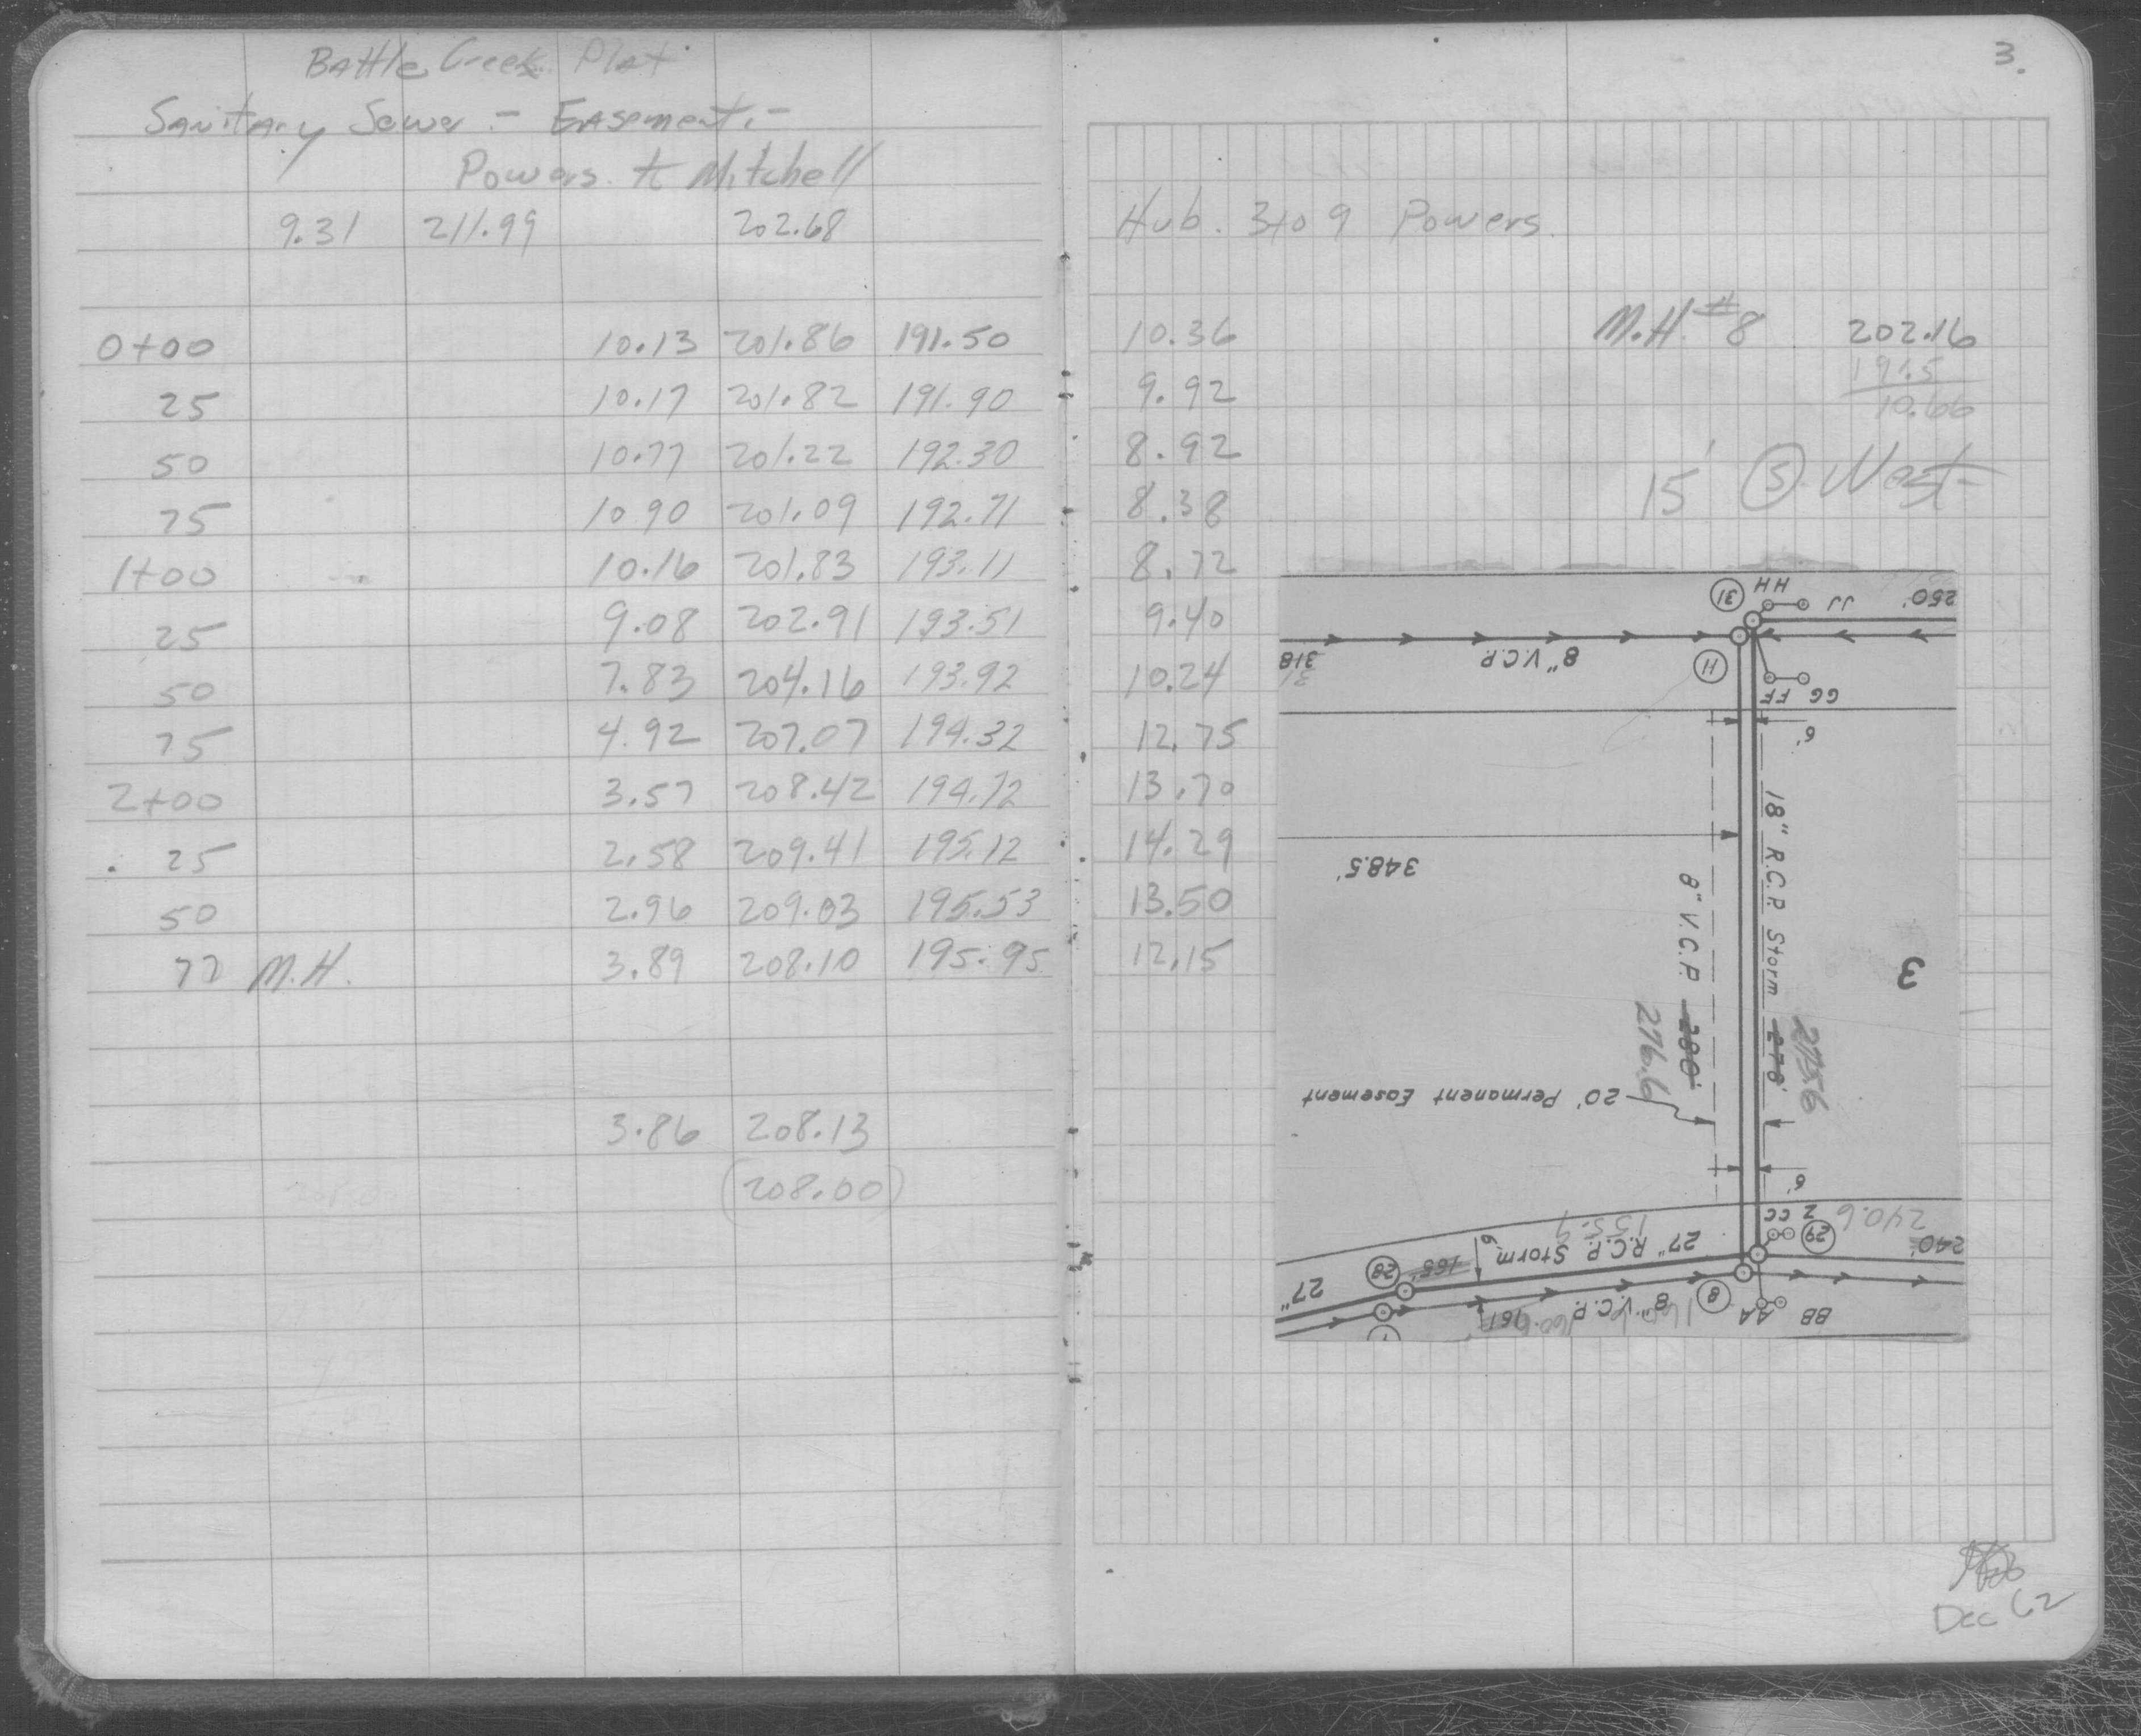 Battle Creek Plat
Sanitary Sewer - Easement. -
Powers to Mitchell
9.31 211.99 202.68
0+00 10.13 201.86 191.50
25 10.17 201.82 191.90
50 10.77 201.22 192.30
75 10 90 201.09 192.71
1+00 10.16 201.83 193.11
25 9.08 202.91 193.51
50 7.83 204.16 193.92
75 4.92 207.07 194.32
2+00 3.57 208.42 194.72
25 2.58 209.41 195.12
50 2.96 209.03 195.53
77 M.H. 3.89 208.10 195.95
3.86 208.13
(208.00)
3.
Hub. 3+09 Powers.
10.36 M.H. #8 202.16
191.5
9.92 10.66
8.92
15' (S) West
8.38
8.72
9.40
10.24
12.75
13.70
14.29
13.50
12.15
31 HH JJ 250'
318 8" V.C.P. H
GG FF
6'
18" R.C.P. Storm 278' 275.6
348.5'
8" V.C.P. 280' 276.6
3
20' Permanent Easement
6'
Z CC 29 240.6
240'
27" R.C.P. Storm 165' 28
6'
27"
8" V.C.P. 161' 8
AA BB
Dec 62